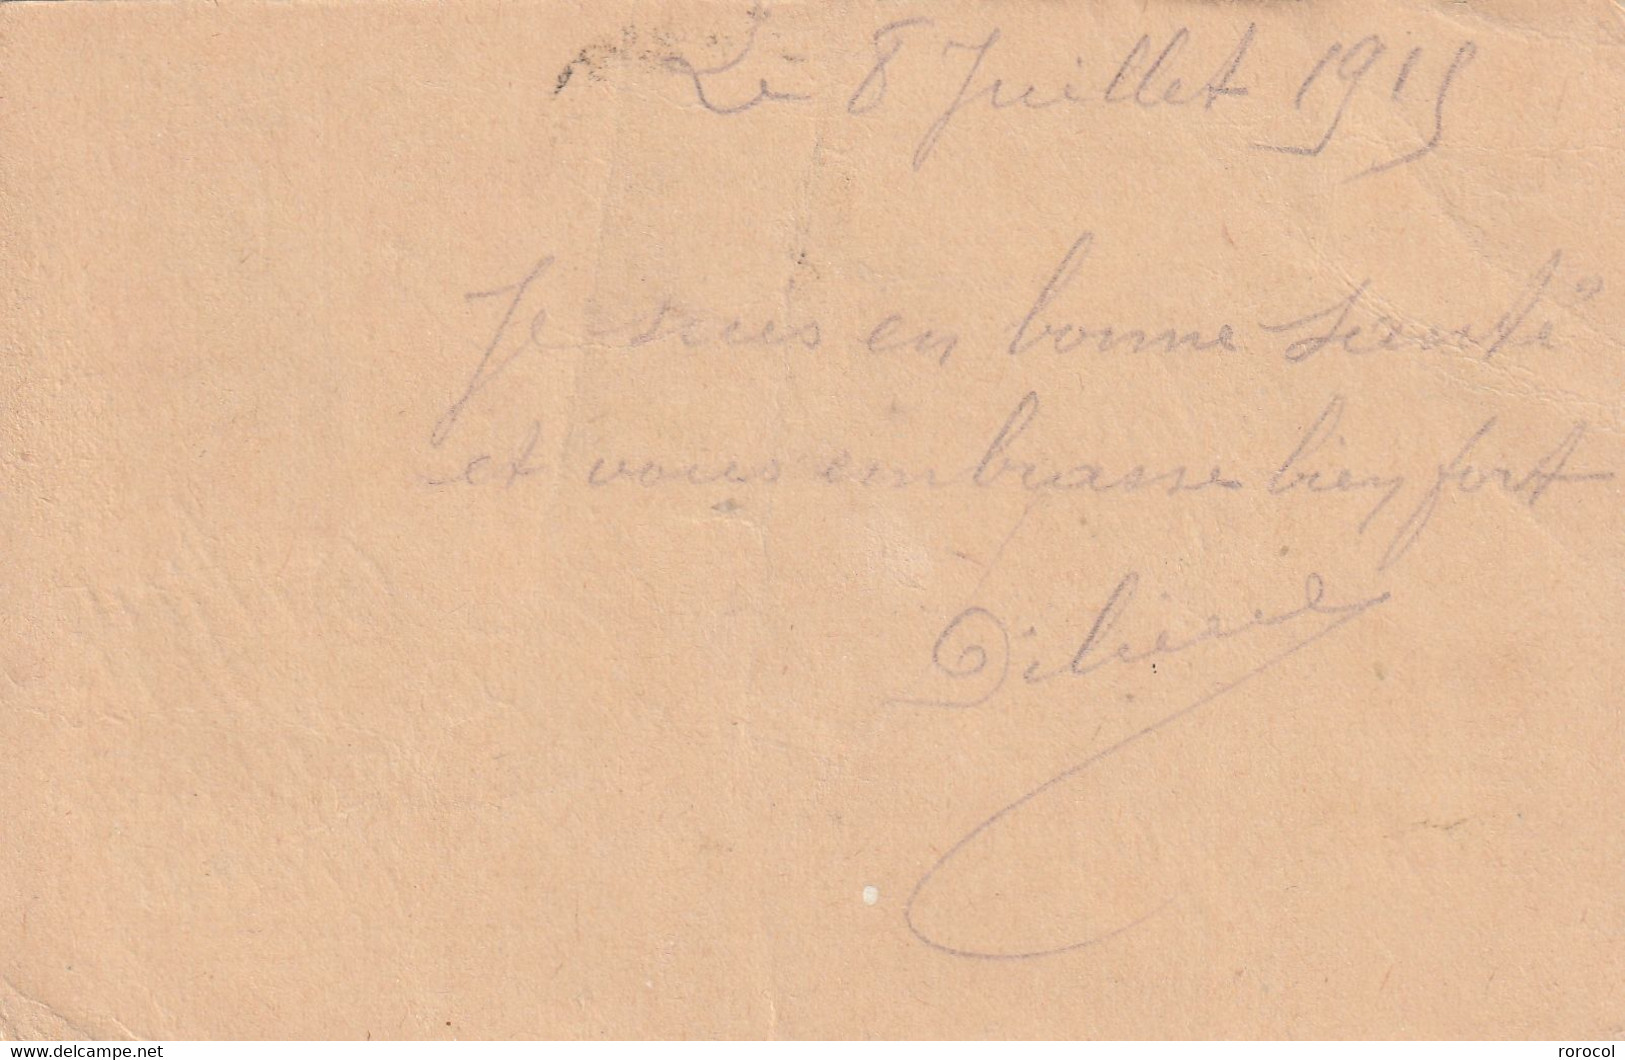 Le 8 Juillet 1915
Je suis en bonne santé
et vous embrasse bien fort
www.delcampe.net
rorocol